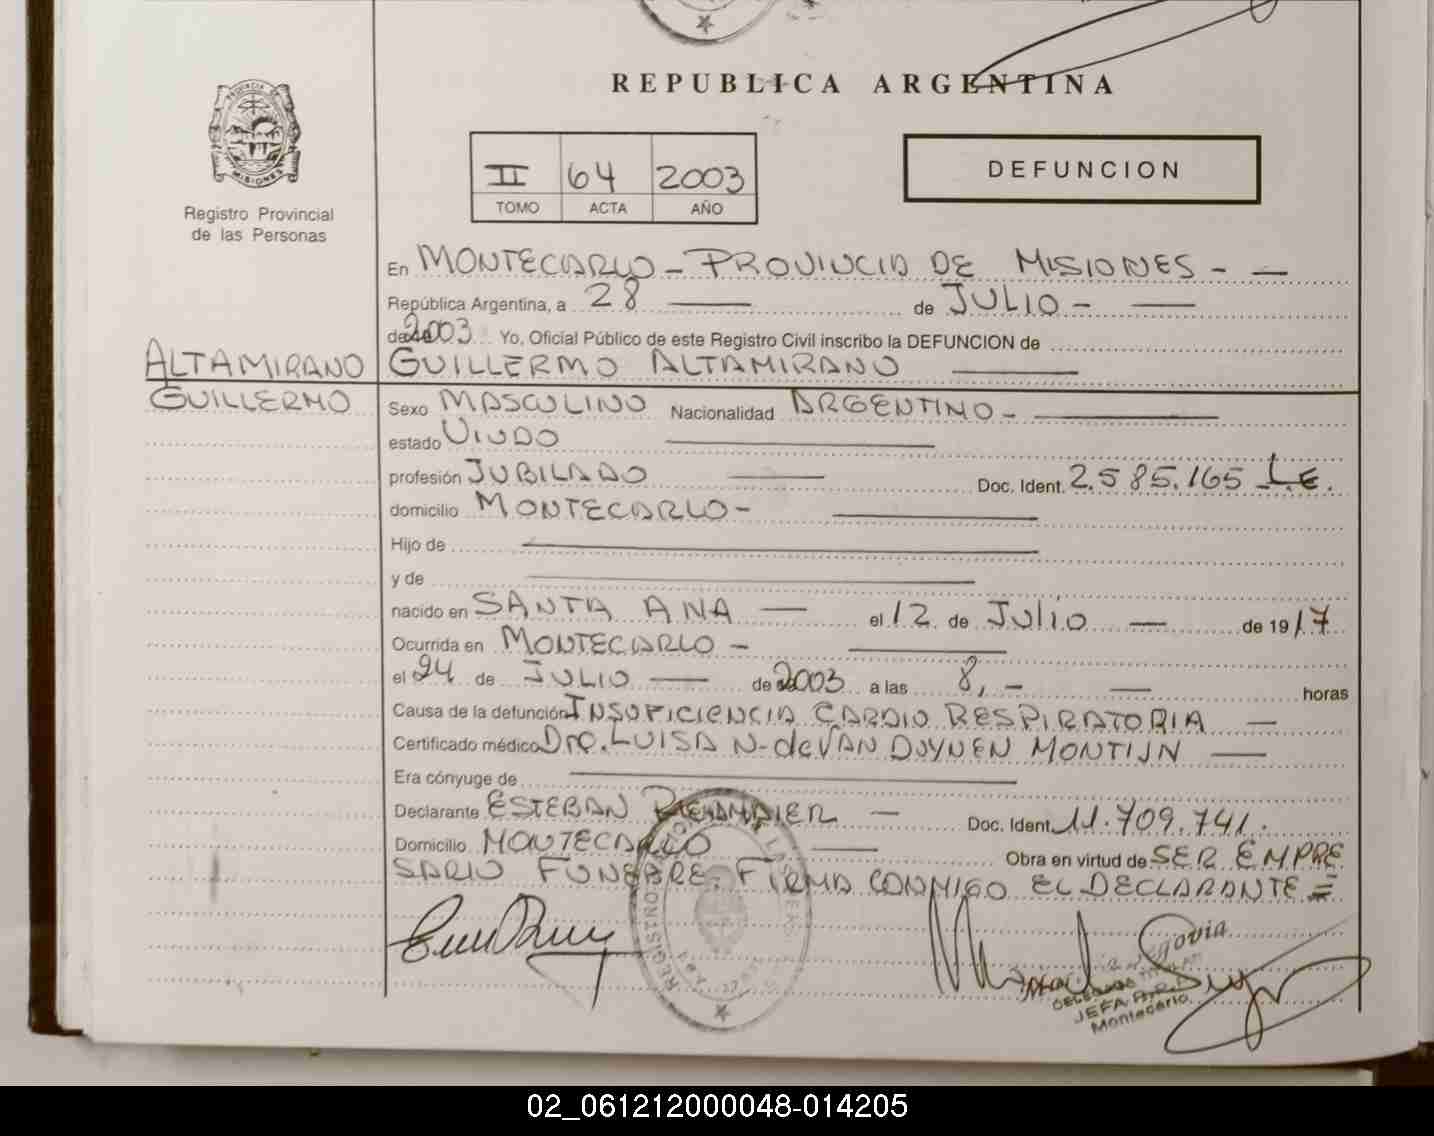 REPUBLICA ARGENTINA
PROVINCIA DE
MISIONES
Registro Provincial
de las Personas
II 64 2003
TOMO ACTA AÑO
DEFUNCION
En MONTECARLO - PROVINCIA DE MISIONES -
República Argentina, a 28 de JULIO -
de 2003 Yo, Oficial Público de este Registro Civil inscribo la DEFUNCION de
ALTAMIRANO
GUILLERMO
GUILLERMO ALTAMIRANO
Sexo MASCULINO Nacionalidad ARGENTINO -
estado VIUDO
profesión JUBILADO Doc. Ident. 2.585.165 L.E.
domicilio MONTECARLO -
Hijo de
y de
nacido en SANTA ANA el 12 de JULIO de 1917
Ocurrida en MONTECARLO -
el 24 de JULIO de 2003 a las 8, - horas
Causa de la defunción INSUFICIENCIA CARDIO RESPIRATORIA
Certificado médico Dra. LUISA N. de VAN DUYNEN MONTIJN
Era cónyuge de
Declarante ESTEBAN Doc. Ident. 11.709.741.
Domicilio MONTECARLO Obra en virtud de SER EMPRE
SARIO FUNEBRE. FIRMA CONMIGO EL DECLARANTE =
JEFA
Montecarlo
02_061212000048-014205